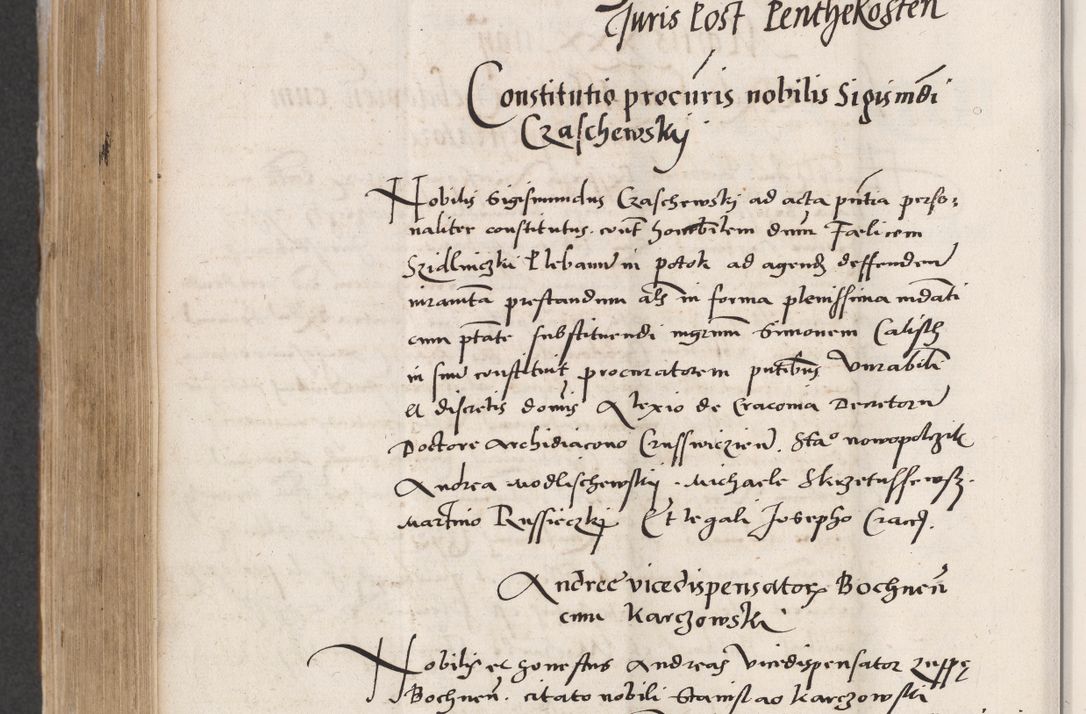 Juris Post Penthekosten
Constitutio procuris nobilis Sigismdi
Czaschewskij
Nobilis Sigismundus Czaschewskj ad acta pñtia perso-
naliter constitutus. coñt honobilem dnm Fælicem
Szidlniczki Plebanum in potok ad agend deffendend
iuramta prestandum als in forma plenissima mdati
cum ptate substituendi mgrum Simonem Calisch
in suum constituit procuratorem pñtibus Vnrabili
et discretis domis Alexio de Cracouia Decretorum
Doctore Archidiacono Crusswiczien. Sta° nowopolczik
Andrea Modlischewskij. Michaele Skrzetussewsz.
Martino Russieczkj Et legali Josepho Crac.
Andree vicedispensator Bochneñ
cum Karczowski
Nobilis et honestus Andreas Vicedispensator zuppę
Bochneñ. citato nobili Stanislao Karczowski